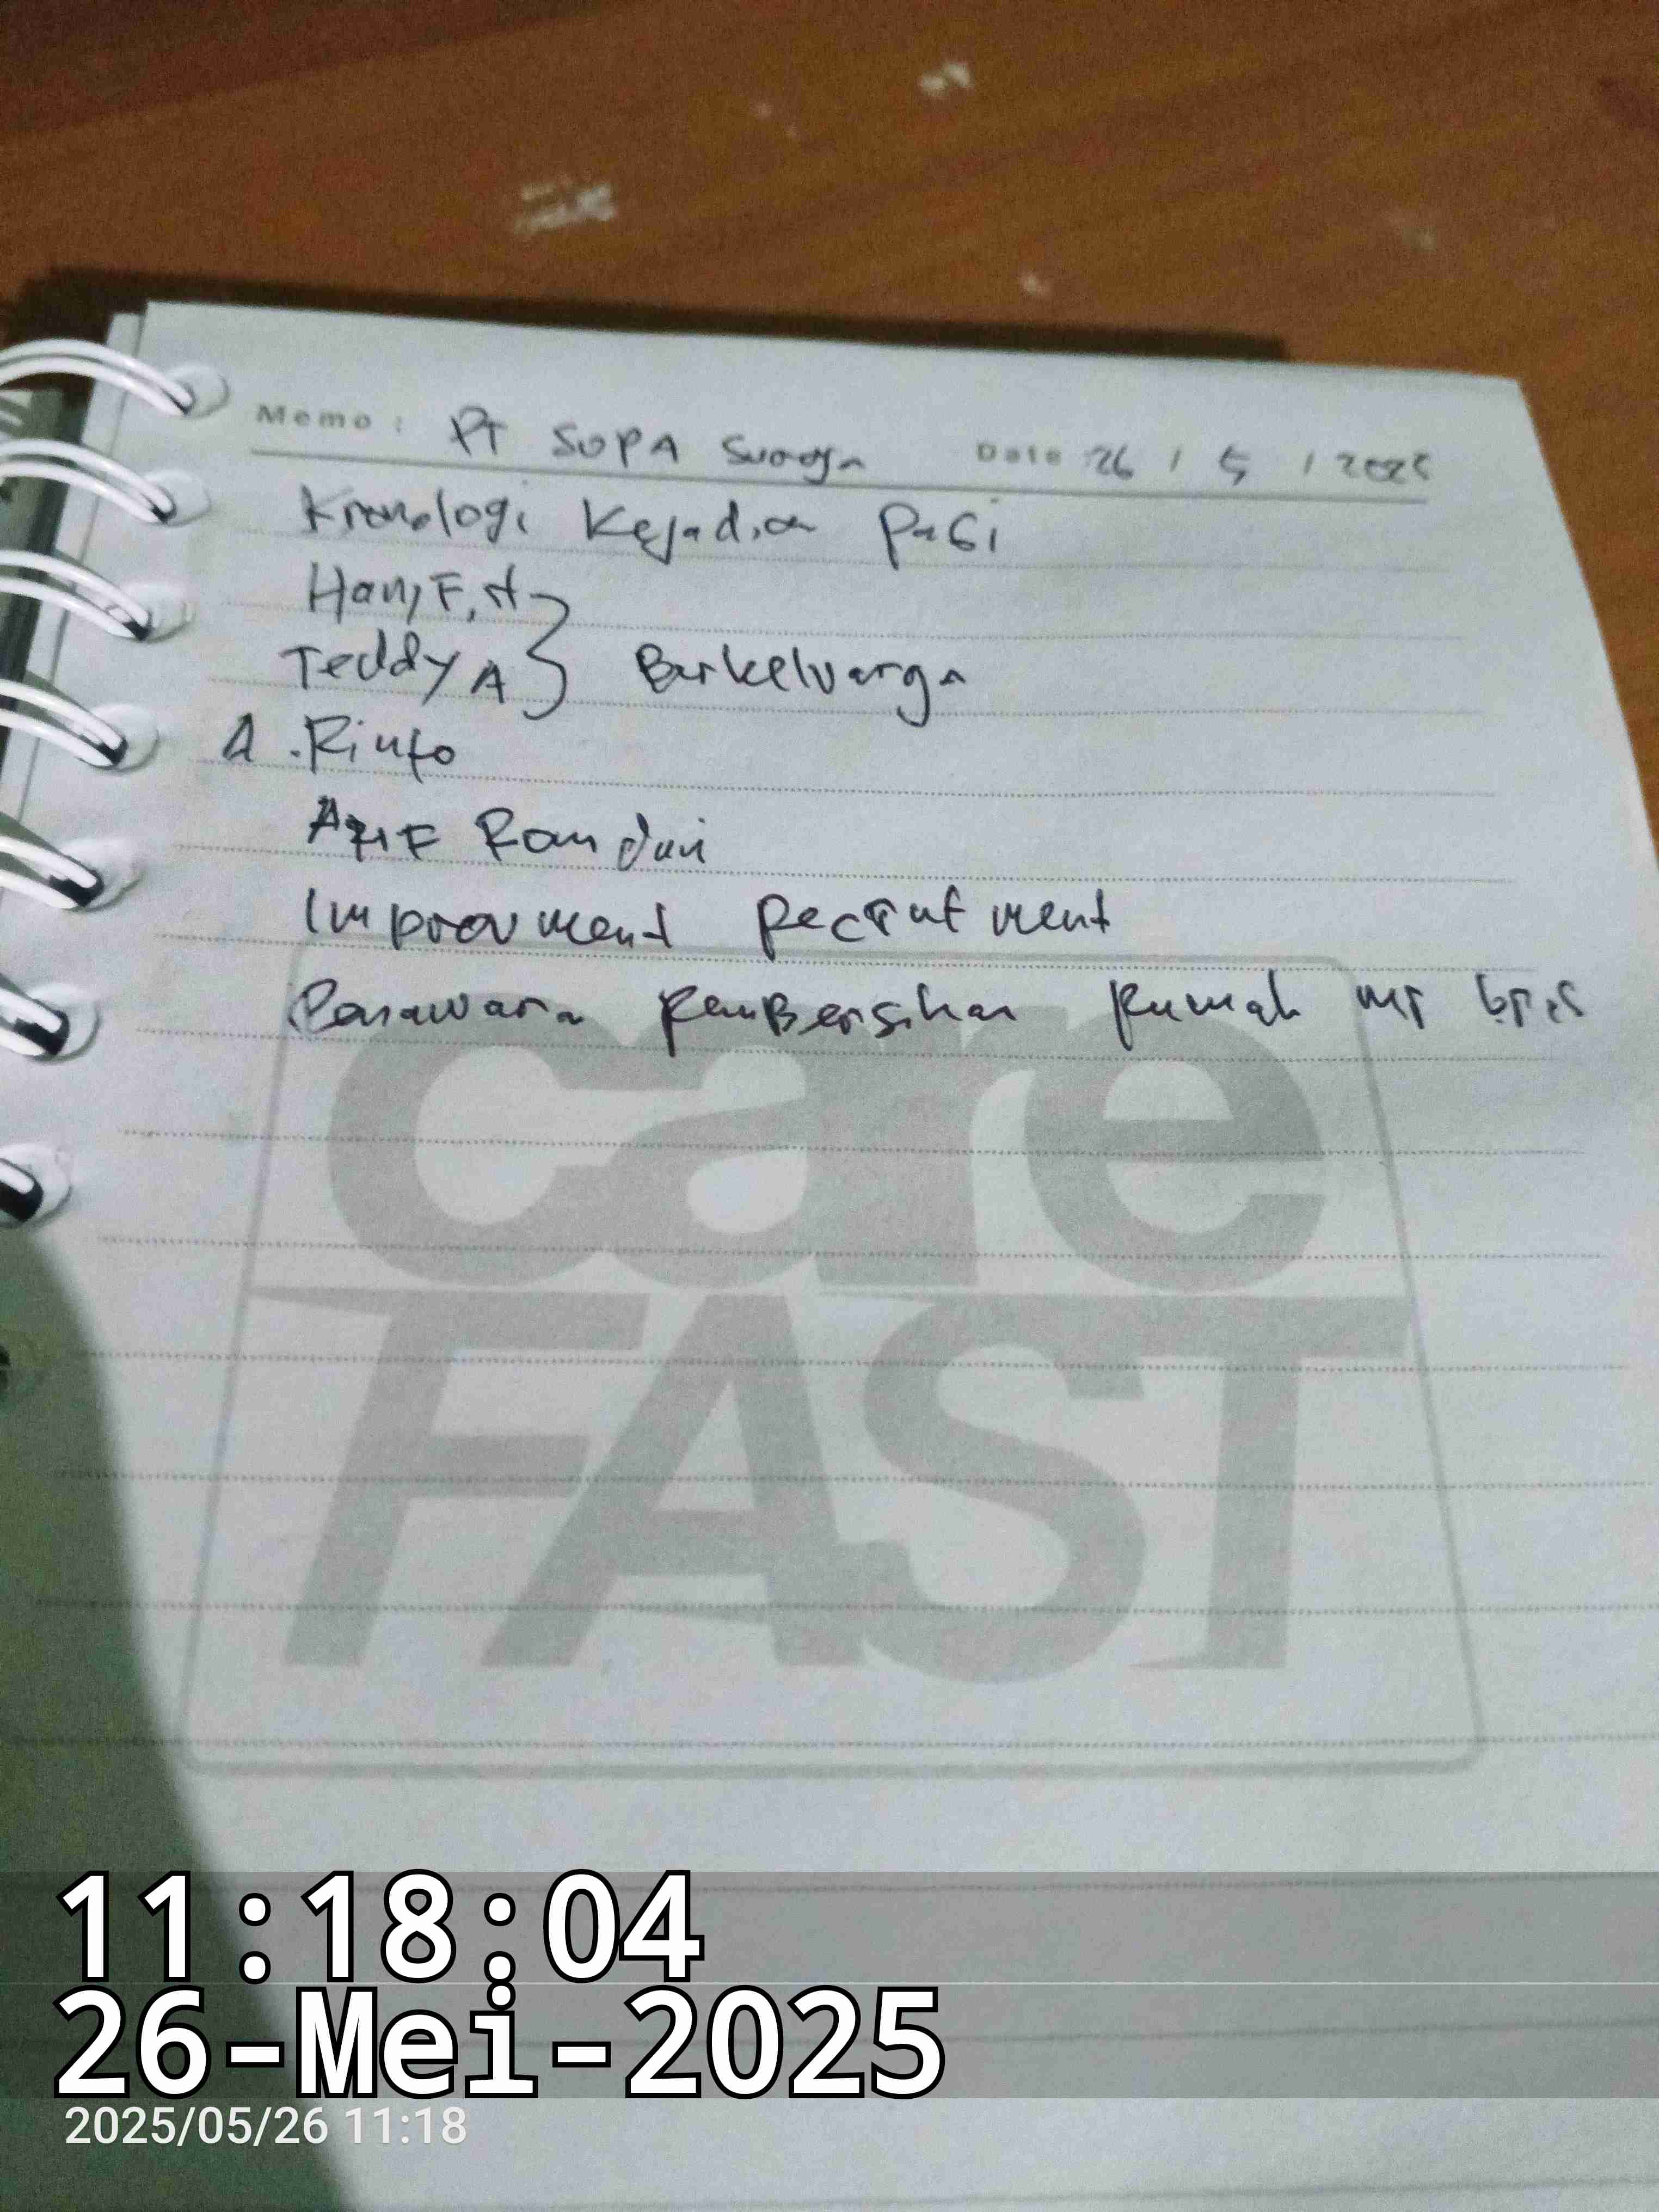 Memo : PT SOPA Date 26 / 5 / 2025
Kronologi Kejadian PaGi
HaniF, H
Teddy A } Berkeluarga
A . Rinto
AriF Ramdani
Improvment Recrutment
Penawaran PemBersihan Rumah
care
FAST
11:18:04
26-Mei-2025
2025/05/26 11:18